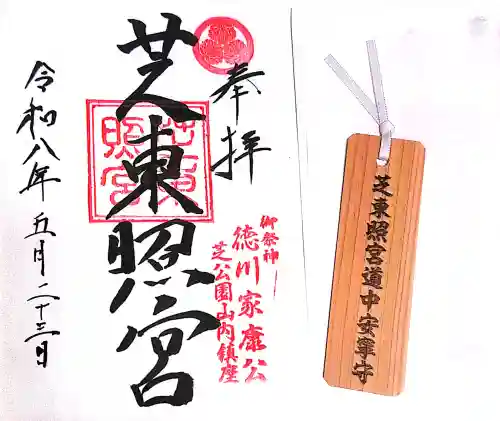 奉拝
芝東照宮
芝東照宮
令和八年五月二十三日
御祭神
徳川家康公
芝公園山内鎮座
芝東照宮道中安寧守